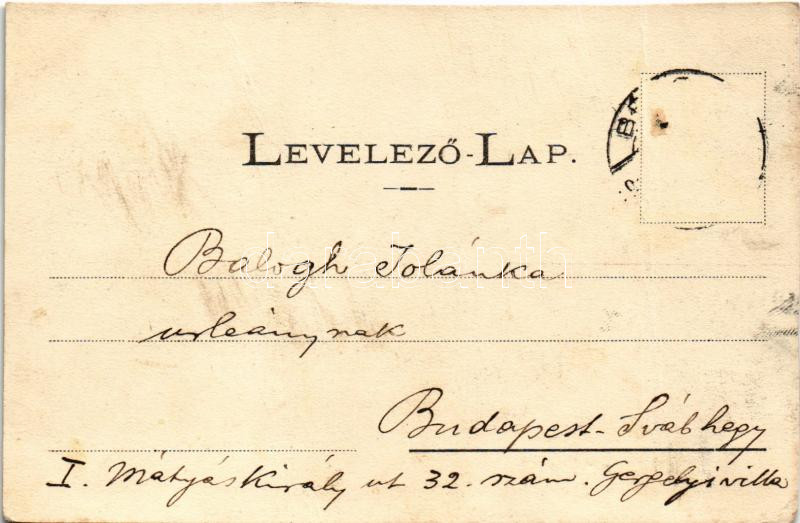 LEVELEZŐ-LAP.
Balogh Jolánka
urleánynak
Budapest-Svábhegy
I. Mátyáskirály ut 32. szám. Gergelyi villa